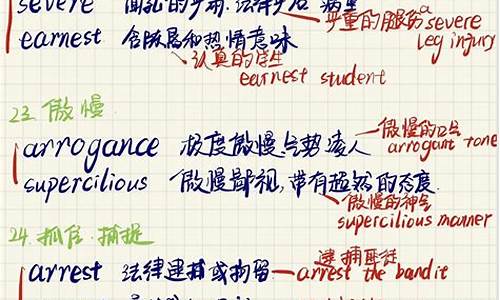 severe
严重的腿伤 a severe
leg injury
earnest 含既有和热情意味
认真的学生
earnest student
23. 傲慢
arrogance 极度傲慢,气势凌人
傲慢的口气
arrogant tone
supercilious 傲慢鄙视,带有超然的态度
傲慢的神气
supercilious manner
24. 抓住.捕捉
arrest 法律逮捕或拘留
逮捕匪徒
arrest the bandit